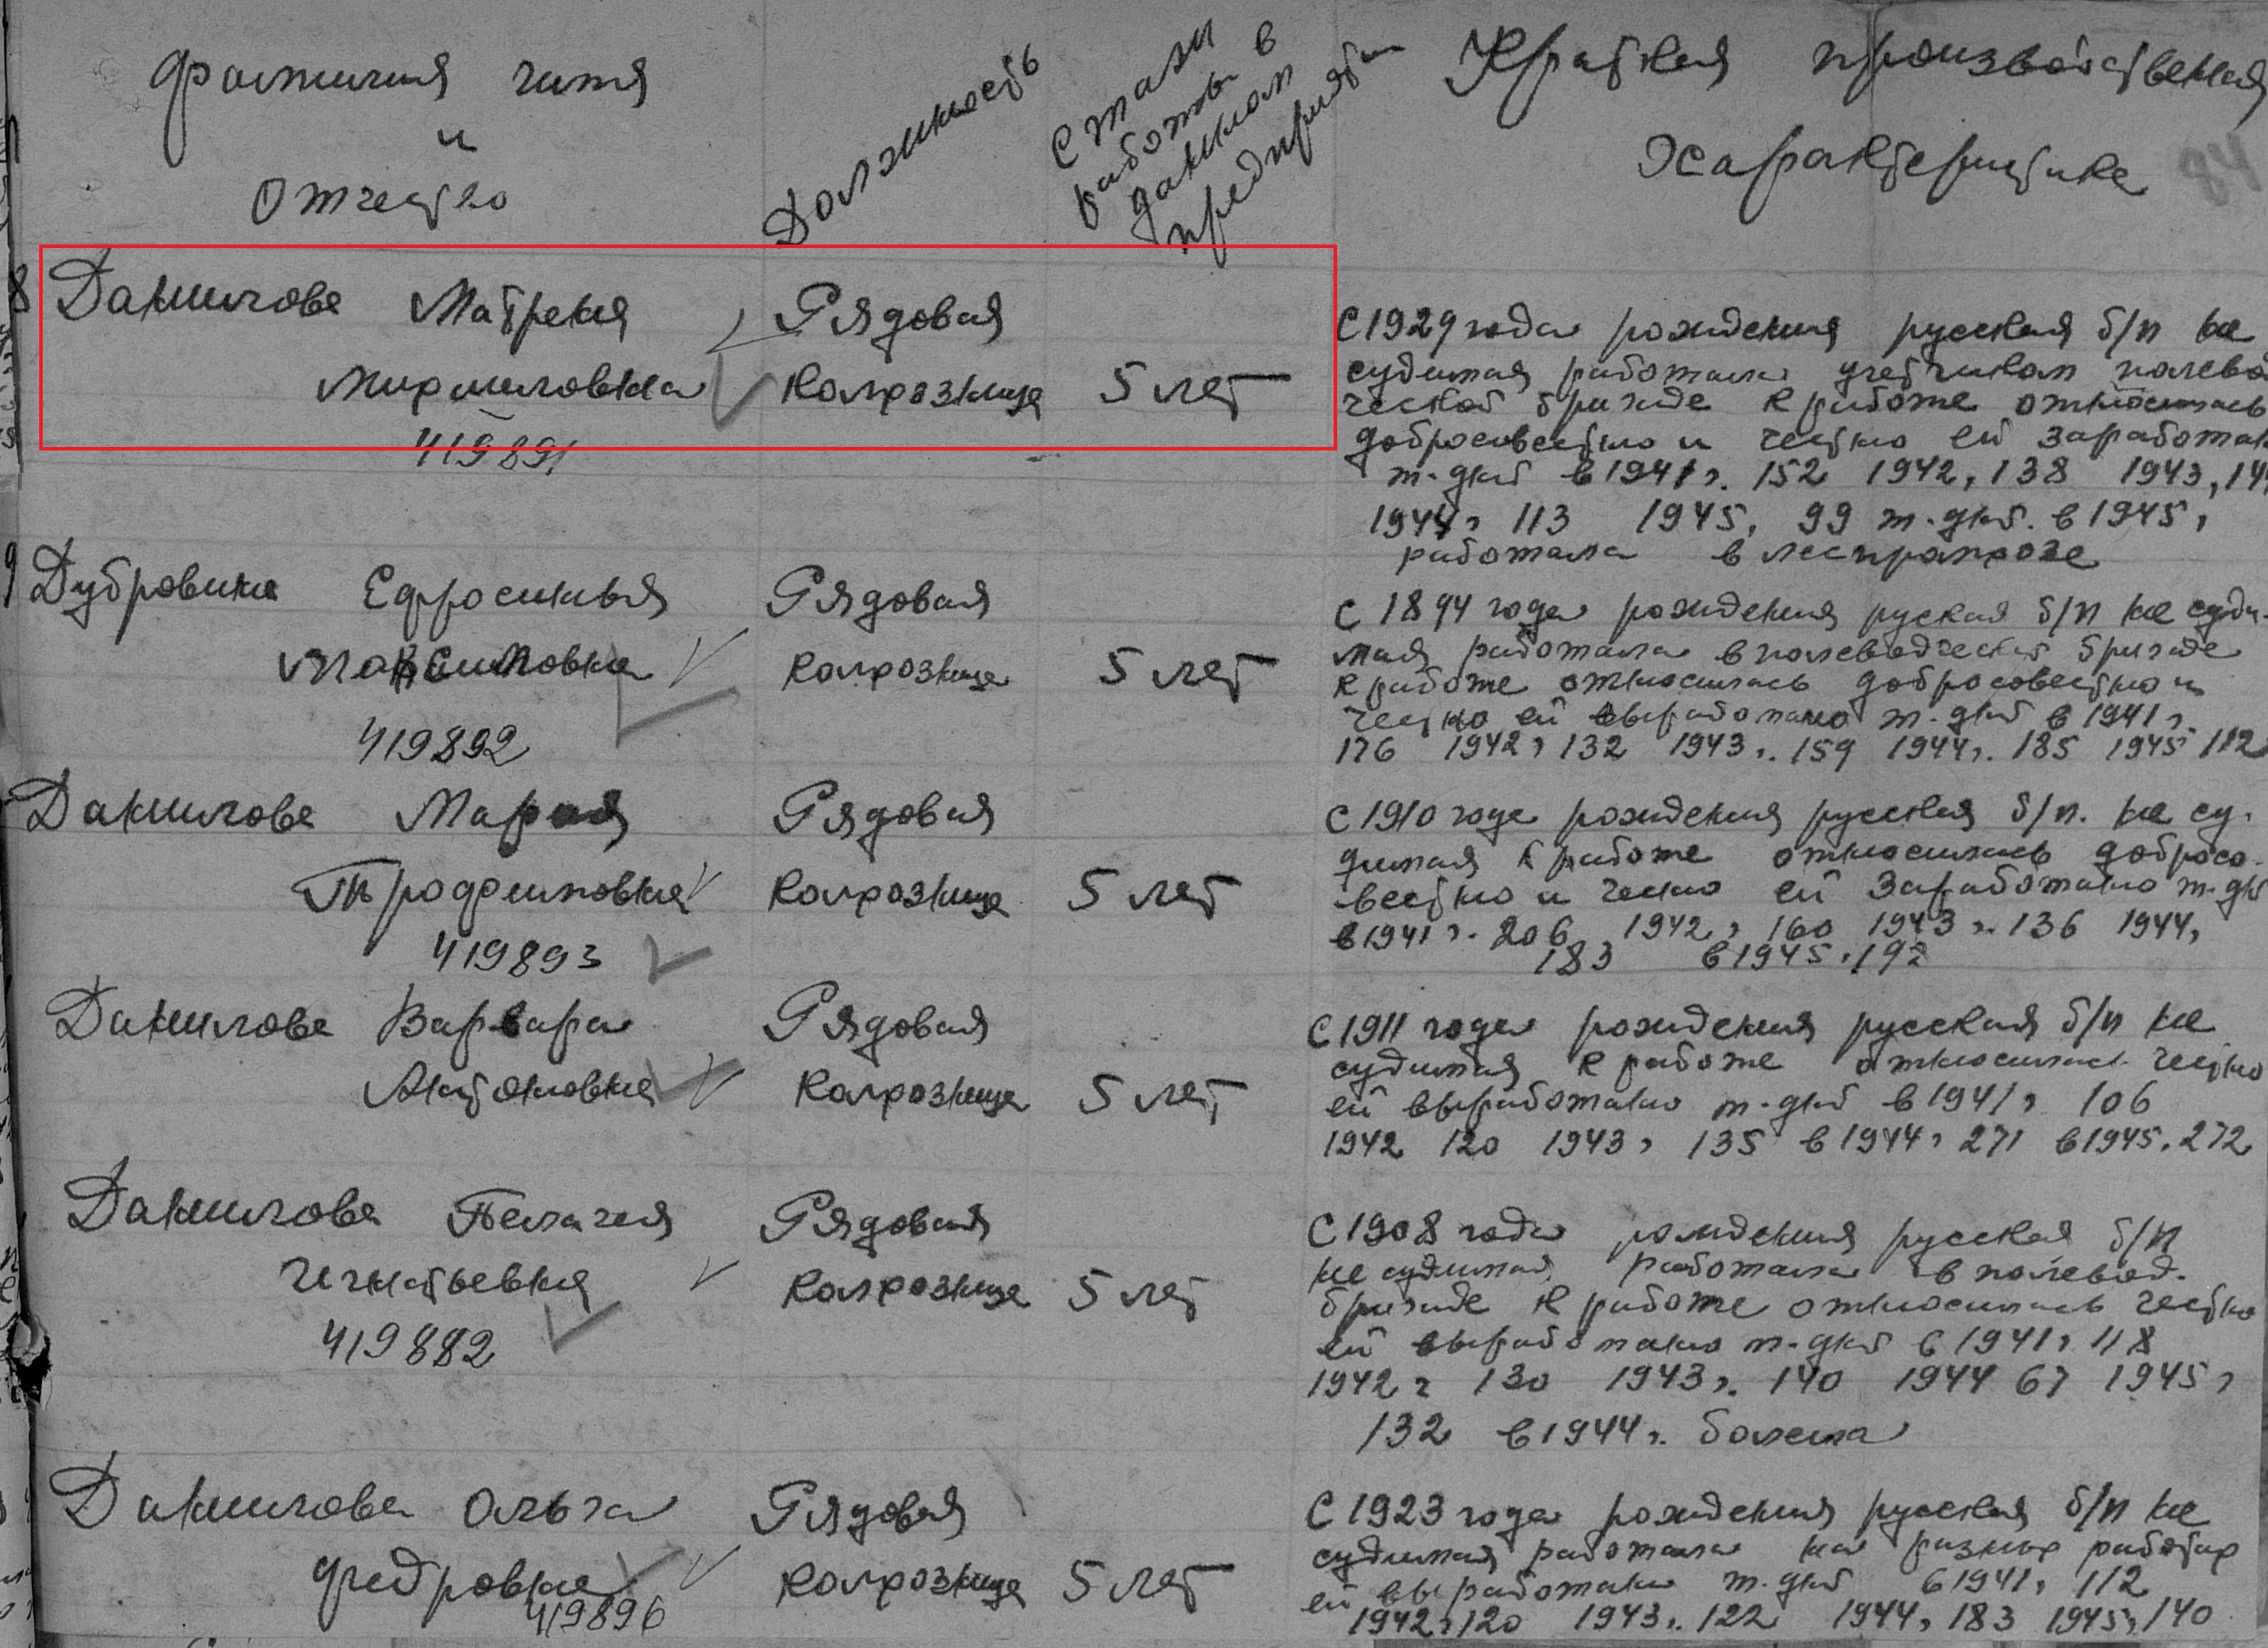 Фамилия имя
и
Отчество
Должность
Стаж
работы в
данном
предприятии
Краткая производственная
Характеристика
84
8 Данилова Матрена
Рядовая
Колхозница
5 лет
419891
С 1929 года рождения русская б/п не
судимая работала учетчиком полево
ческой бригаде к работе относилась
добросовестно и честно ей заработан
т-дней в 1941 г. 152 1942, 138 1943, 14
1944 г 113 1945, 99 т-дней. в 1945,
работала в леспромхозе
9 Дубровина Ефросинья
Максимовна
Рядовая
колхозница
5 лет
419892
С 1894 года рождения руская б/п не суди-
мая работала в полеводческой бригаде
к работе относилась добросовестно и
честно ей выработано т-дней в 1941 г.
176 1942 г 132 1943 г. 159 1944 г. 185 1945 112
Данилова Мария
Трофимовна
Рядовая
Колхозница
5 лет
419893
С 1910 года рождения русская б/п. не су-
димая к работе относилась добросо-
вестно и чесно ей заработано т-дн
в 1941 г. 206 1942 г 160 1943 г. 136 1944,
183 в 1945, 192
Данилова Варвара
Антоновна
Рядовая
Колхозница
5 лет
С 1911 года рождения русская б/п не
судимая к работе относилась честно
ей выработано т-дней в 1941 г 106
1942 120 1943 г 135 в 1944 г 271 в 1945. 272
Данилова Пелагея
Игнатьевна
Рядовая
Колхозница
5 лет
419882
С 1908 года рождения русская б/п
не судимая работала в полевод.
бригаде к работе относилась честно
ей выработано т-дней в 1941 г 118
1942 г 130 1943 г. 140 1944 67 1945 г
132 в 1944 г. болела
Данилова Ольга
Федровна
Рядовая
колхозница
5 лет
419896
С 1923 года рождения русская б/п не
судимая работала на разных работах
ей выработано т-дней в 1941, 112
1942 г 120 1943 г. 122 1944, 183 1945 г, 140